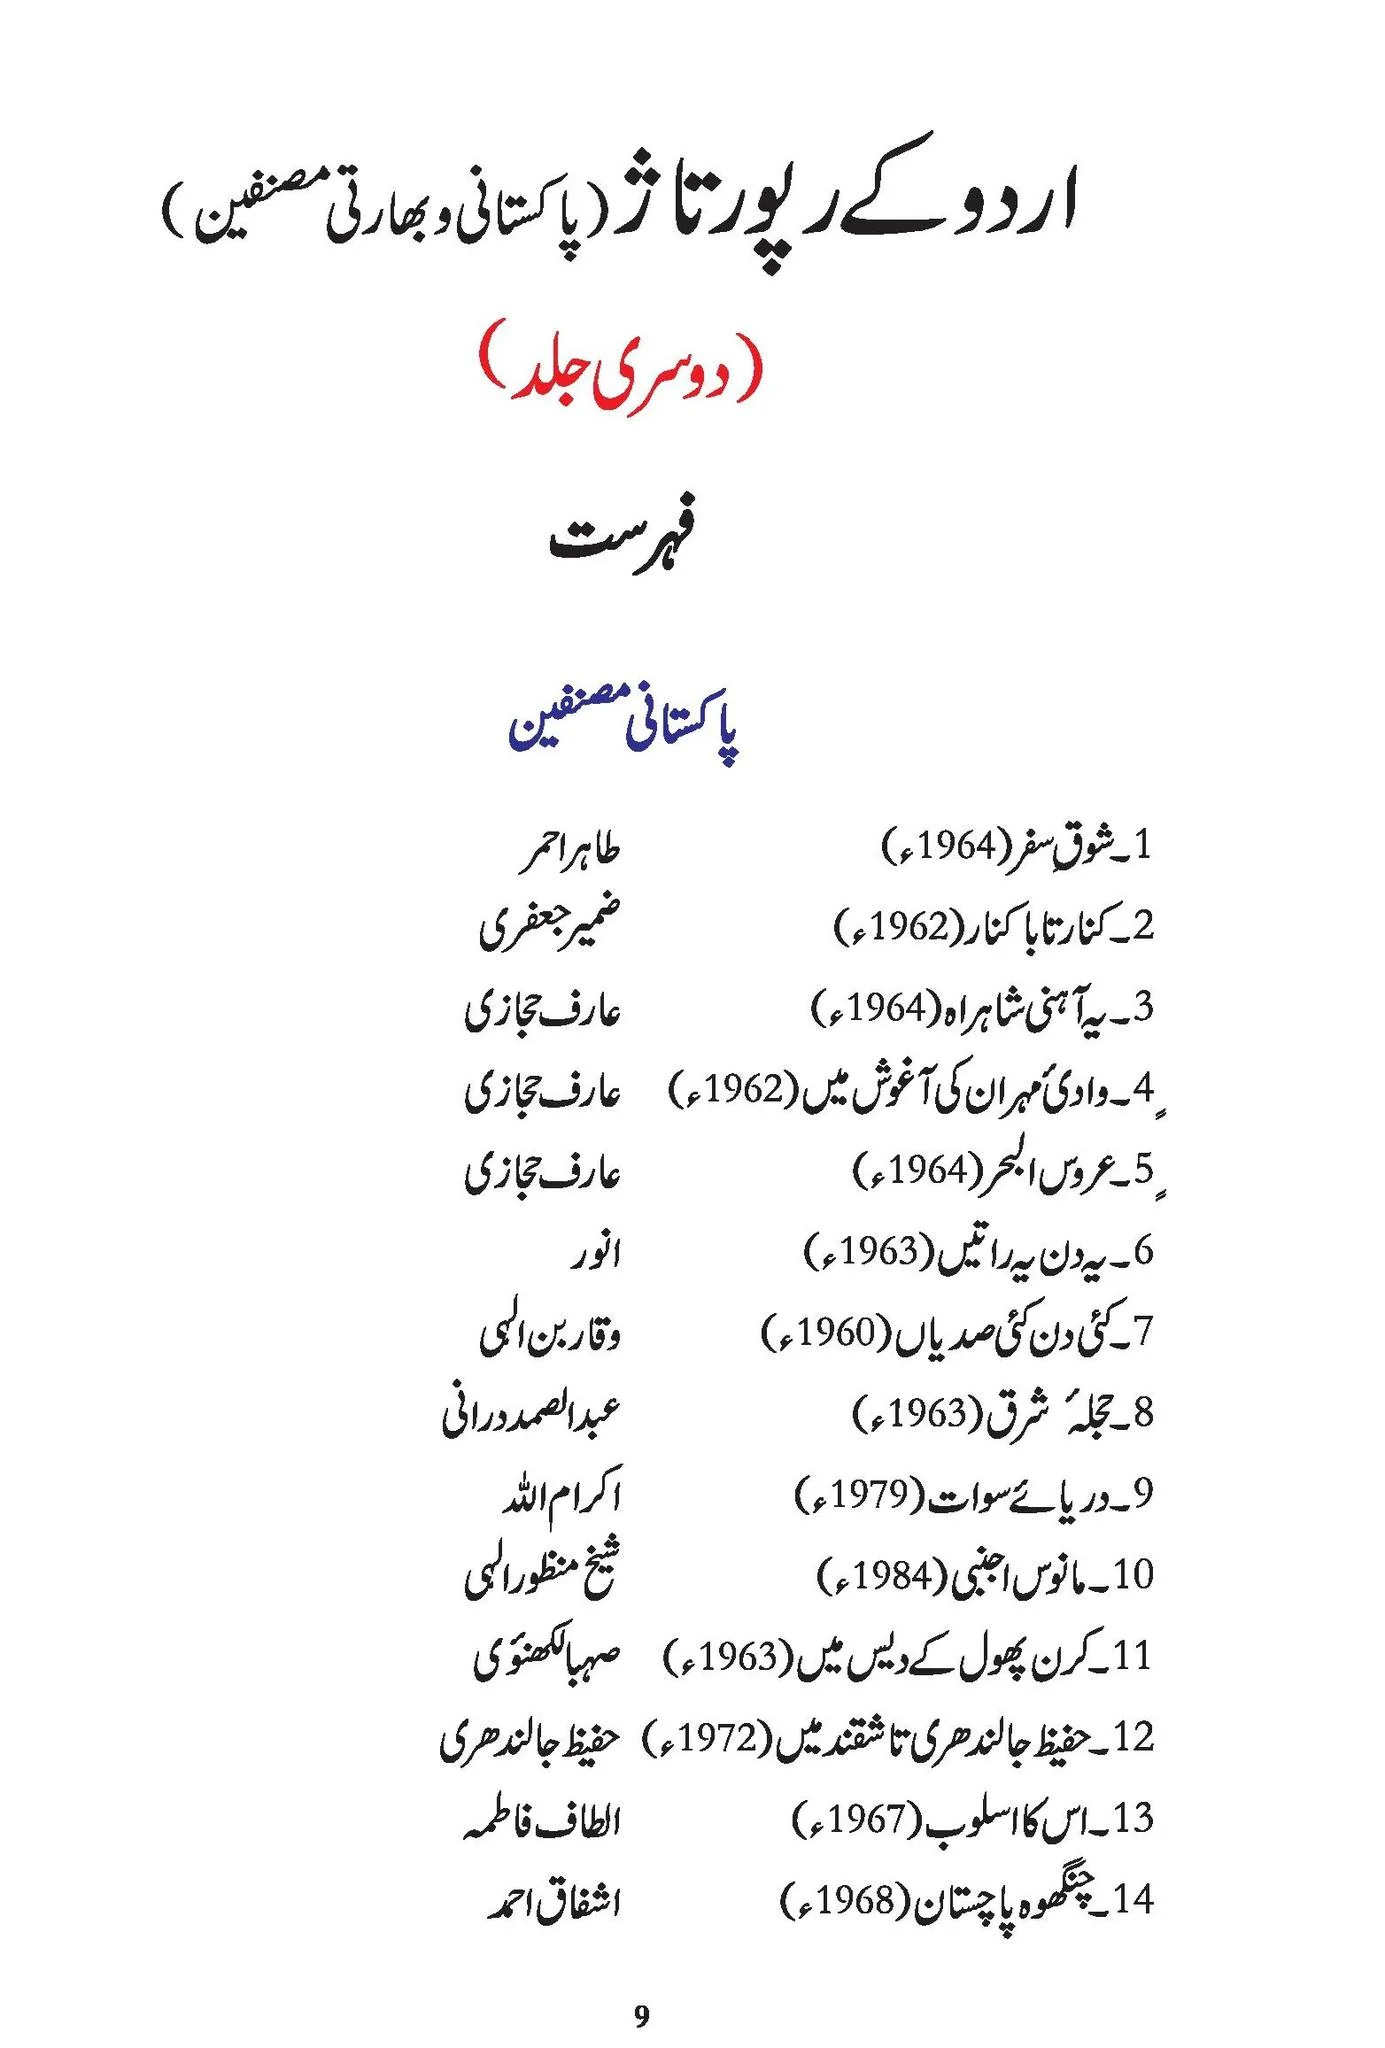 اردو کے رپورتاژ (پاکستانی و بھارتی مصنفین)
(دوسری جلد)
فہرست
پاکستانی مصنفین
1۔شوقِ سفر (1964ء) طاہر احمر
2۔کنار تا با کنار (1962ء) ضمیر جعفری
3۔یہ آہنی شاہراہ (1964ء) عارف حجازی
4۔وادیٔ مہران کی آغوش میں (1962ء) عارف حجازی
5۔عروس البحر (1964ء) عارف حجازی
6۔یہ دن یہ راتیں (1963ء) انور
7۔کئی دن کئی صدیاں (1960ء) وقار بن الٰہی
8۔حجلہٴ شرق (1963ء) عبدالصمد درانی
9۔دریائے سوات (1979ء) اکرام اللہ
10۔مانوس اجنبی (1984ء) شیخ منظور الٰہی
11۔کرن پھول کے دیس میں (1963ء) صہبا لکھنؤی
12۔حفیظ جالندھری تاشقند میں (1972ء) حفیظ جالندھری
13۔اس کا اسلوب (1967ء) الطاف فاطمہ
14۔چنگھوہ پاچستان (1968ء) اشفاق احمد
9